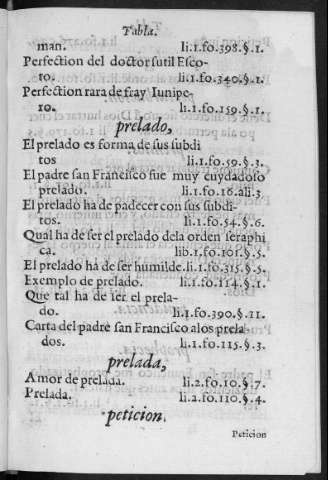 Tabla.
man. li.1.fo.398.§.1.
Perfection del doctor sutil Esco-
to. li.1.fo.340.§.1.
Perfection rara de fray Iunipe-
ro. li.1.fo.159.§.1.
prelado,
El prelado es forma de sus subdi
tos li.1.fo.59.§.3.
El padre san Francisco fue muy cuydadoso
prelado. li.1.fo.16.ali.3.
El prelado ha de padecer con sus subdi-
tos. li.1.fo.54.§.6.
Qual ha de ser el prelado dela orden seraphi
ca. lib.1.fo.101.§.5.
El prelado ha de ser humilde. li.1.fo.315.§.5.
Exemplo de prelado. li.1.fo.114.§.1.
Que tal ha de ser el prela-
do. li.1.fo.390.§.11.
Carta del padre san Francisco alos prela
dos. li.1.fo.115.§.3.
prelada,
Amor de prelada. li.2.fo.10.§.7.
Prelada. li.2.fo.110.§.4.
peticion.
Peticion